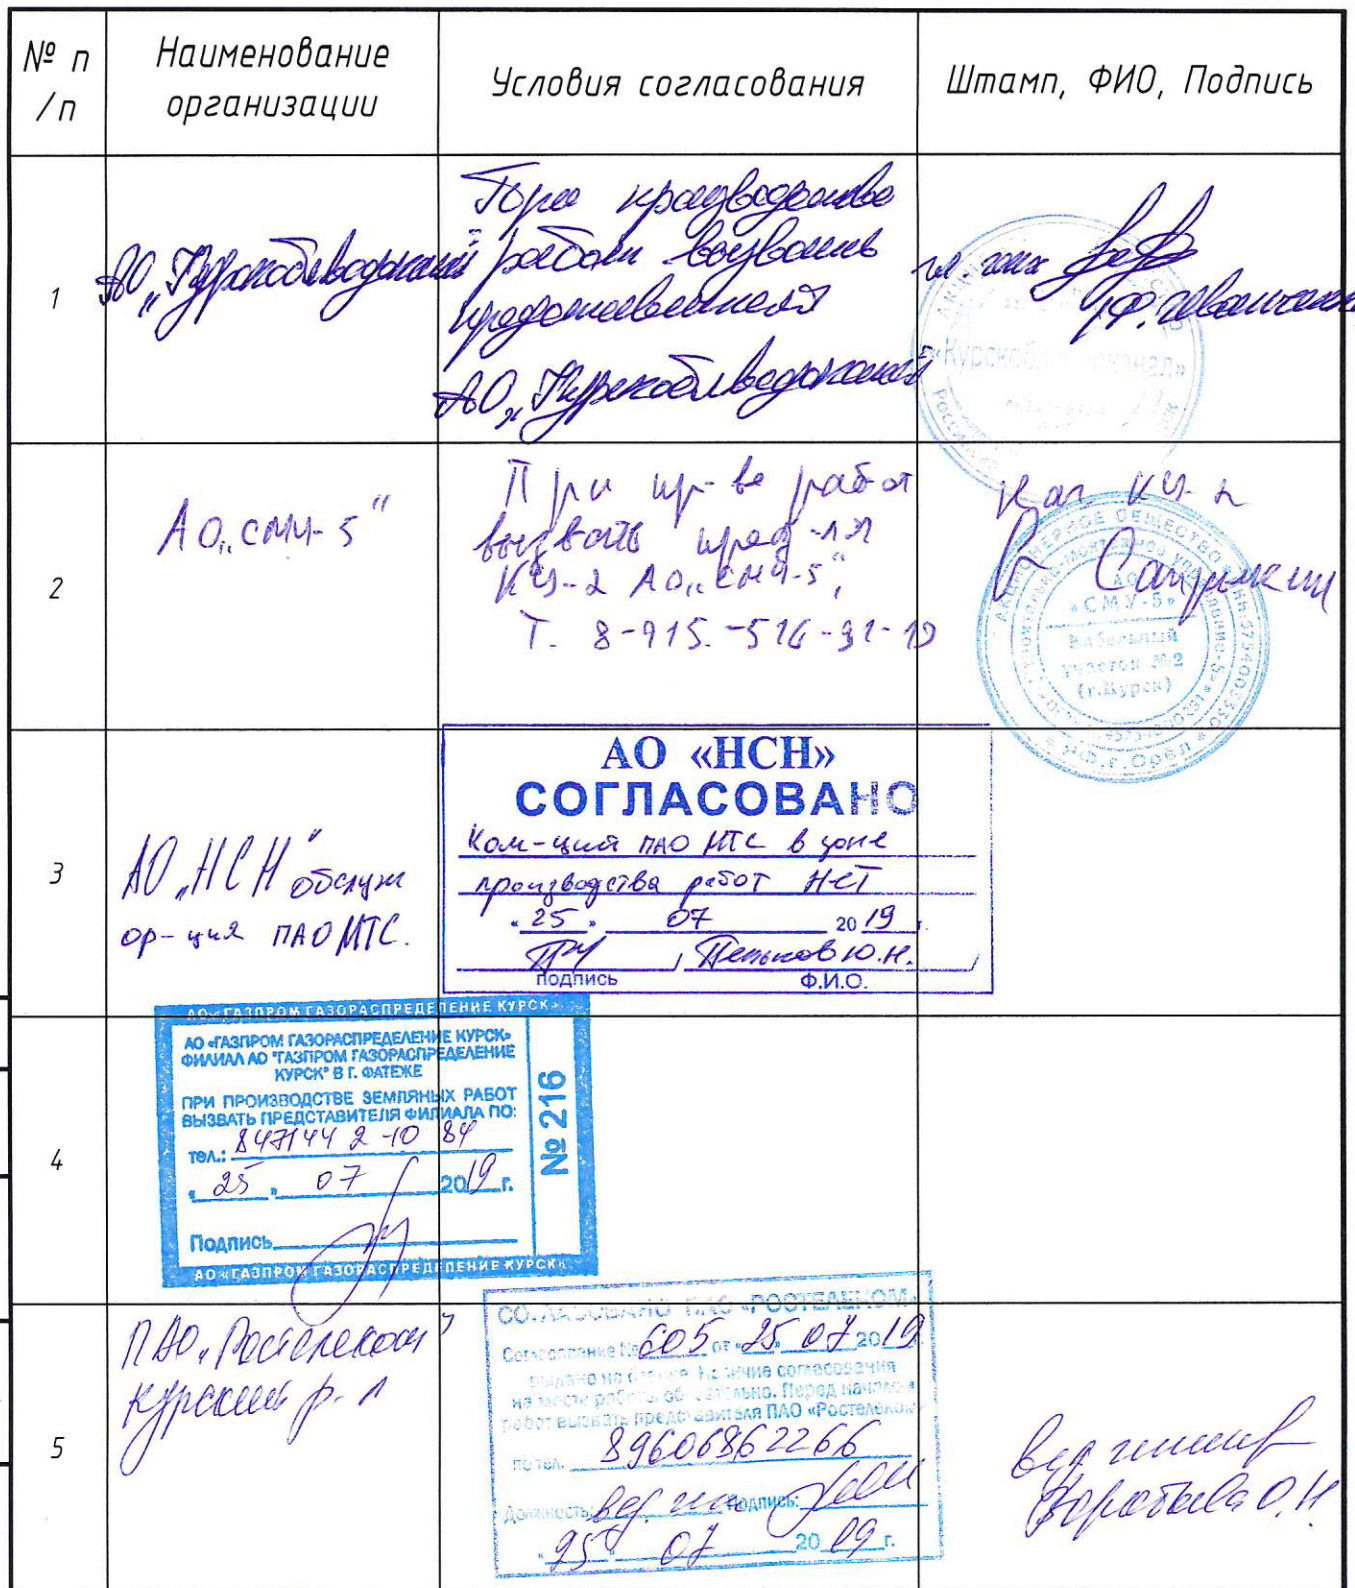 № п
/п
Наименование
организации
Условия согласования
Штамп, ФИО, Подпись
1
АО „Курскоблводоканал"
При производстве
работ вызвать
представителя
АО „Курскоблводоканал"
гл. инж
2
АО „СМУ-5"
При пр-ве работ
вызвать пред-ля
КУ-2 АО „СМУ-5",
Т. 8-915.-516-91-19
Нач КУ-2
АКЦИОНЕРНОЕ ОБЩЕСТВО
АО
«СМУ-5»
Кабельный
участок №2
(г.Курск)
РФ, г. Орёл
3
АО „НСН" обслуж
ор-ция ПАО МТС.
АО «НСН»
СОГЛАСОВАНО
Ком-ций ПАО МТС в зоне
производства работ НЕТ
« 25 » 07 20 19 г.
Пеньков Ю.Н.
подпись Ф.И.О.
4
АО «ГАЗПРОМ ГАЗОРАСПРЕДЕЛЕНИЕ КУРСК»
АО «ГАЗПРОМ ГАЗОРАСПРЕДЕЛЕНИЕ КУРСК»
ФИЛИАЛ АО "ГАЗПРОМ ГАЗОРАСПРЕДЕЛЕНИЕ
КУРСК" В Г. ФАТЕЖЕ
ПРИ ПРОИЗВОДСТВЕ ЗЕМЛЯНЫХ РАБОТ
ВЫЗВАТЬ ПРЕДСТАВИТЕЛЯ ФИЛИАЛА ПО:
тел.: 847144 2-10 84
« 25 » 07 2019 г.
Подпись
№ 216
АО «ГАЗПРОМ ГАЗОРАСПРЕДЕЛЕНИЕ КУРСК»
5
ПАО „Ростелеком"
Курский р-л
СОГЛАСОВАНО ПАО «РОСТЕЛЕКОМ»
Согласование № 605 от «25» 07 2019
Наличие согласования
на месте работ обязательно. Перед началом
работ вызвать представителя ПАО «Ростелеком»
по тел. 89606862266
Должность: вед. инж Подпись:
« 25 » 07 20 19 г.
Вед инженер
Воротаева О.Н.